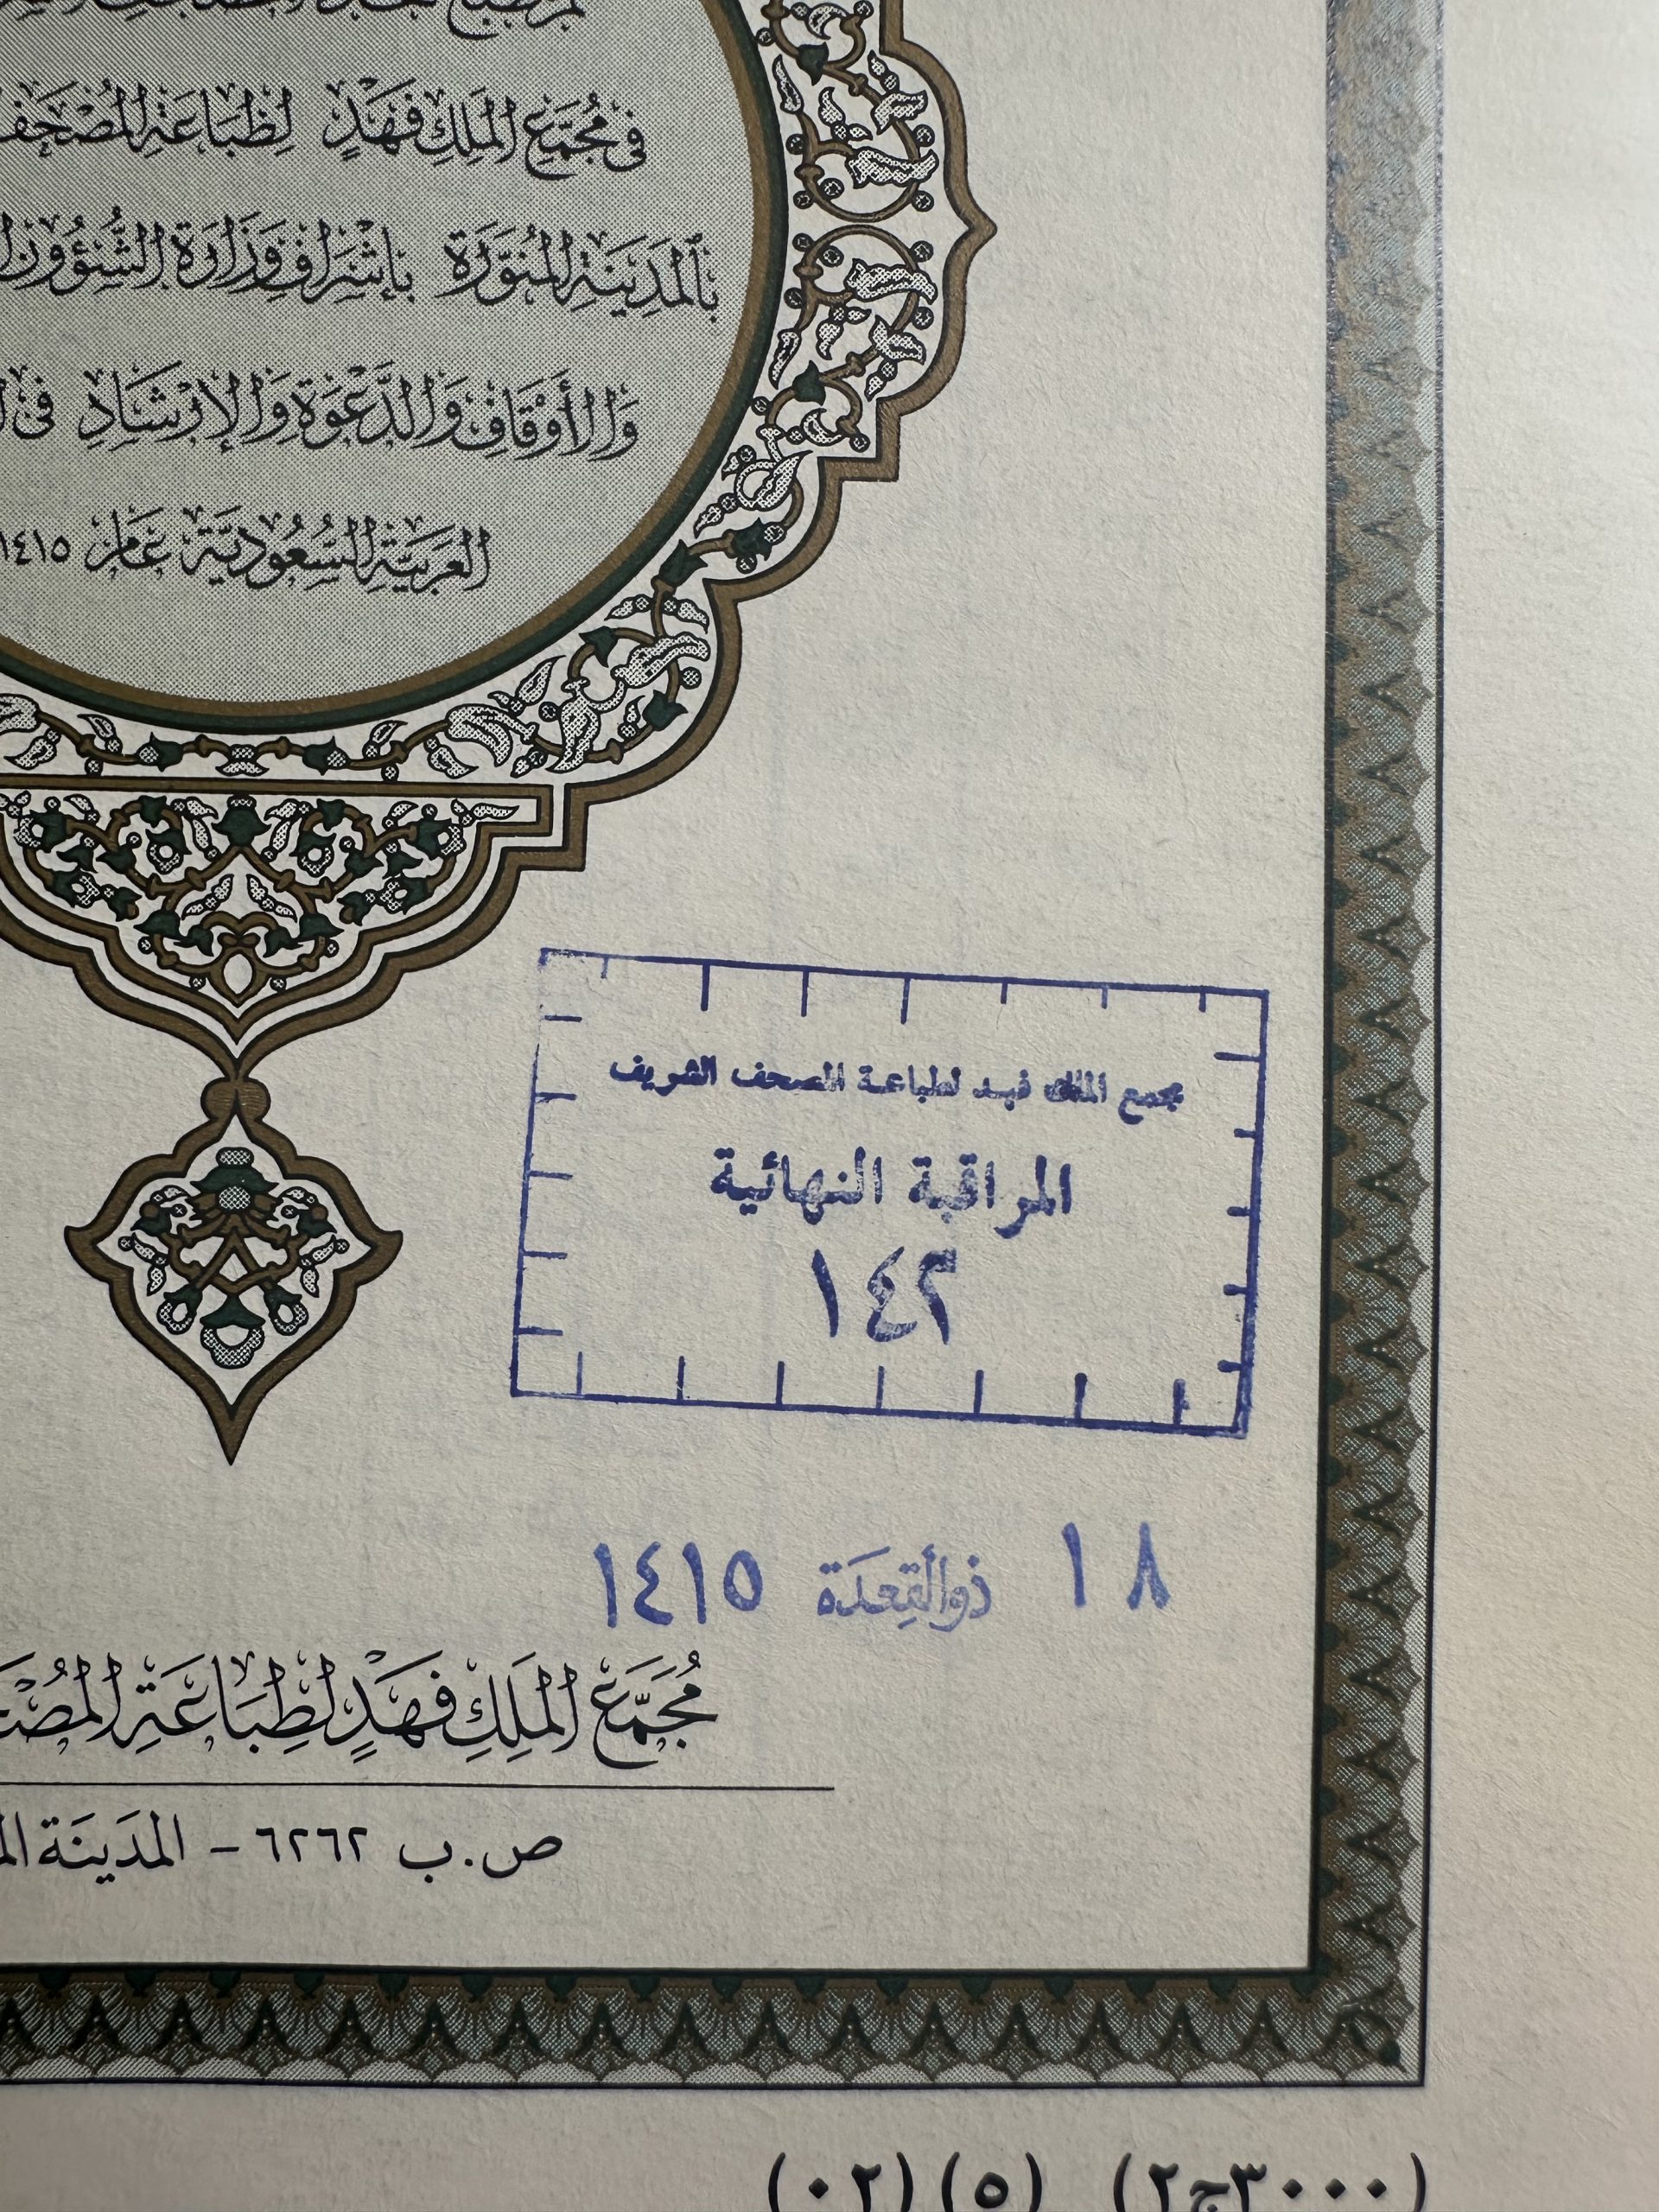 في مجمع الملك فهد لطباعة المصحف
بالمدينة المنورة بإشراف وزارة الشؤون
والأوقاف والدعوة والإرشاد في
العربية السعودية عام ١٤١٥
مجمع الملك فهد لطباعة المصحف الشريف
المراقبة النهائية
١٤٢
١٨ ذوالقعدة ١٤١٥
مُجَمَّع المَلِكِ فَهَدٍ لِطِبَاعَةِ
ص.ب ٦٢٦٢ - المدينَة
(٣٠٠٠ج٢) (٥) (٠٢)